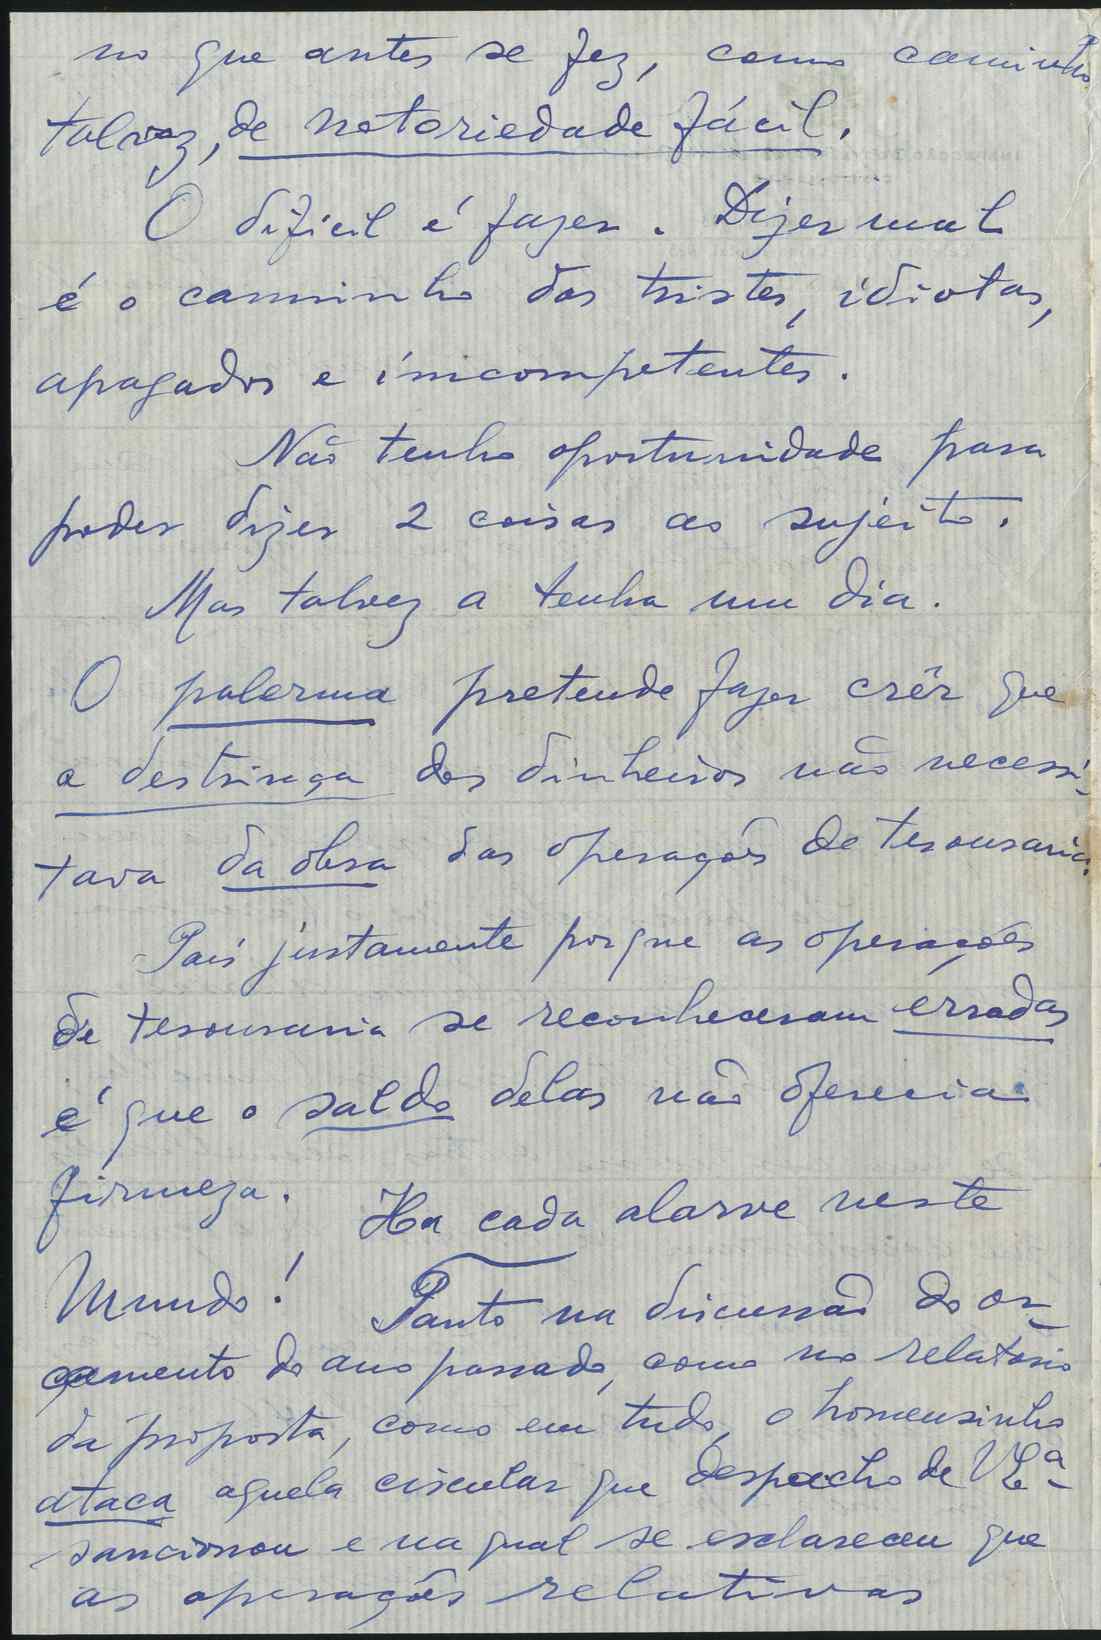 no que antes se fez, como caminho
talvez, de notoriedade fácil.
O dificil é fazer. Dizer mal
é o caminho dos tristes, idiotas,
apagados e imcompetentes.
Não tenho oportunidade para
poder dizer 2 coisas ao sujeito.
Mas talvez a tenha um dia.
O palerma pretende fazer crêr que
a destrinça dos dinheiros não necessi-
tava da obra das operações de tesouraria.
Pois justamente porque as operações
de tesouraria se reconheceram erradas
é que o saldo delas não oferecia
firmeza. Ha cada alarve neste
Mundo! Tanto na discussão do or-
çamento do ano passado, como no relatorio
da proposta, como em tudo, o homensinho
ataca aquela circular que despacho de V Exª
sancionou e na qual se esclareceu que
as operações relativas